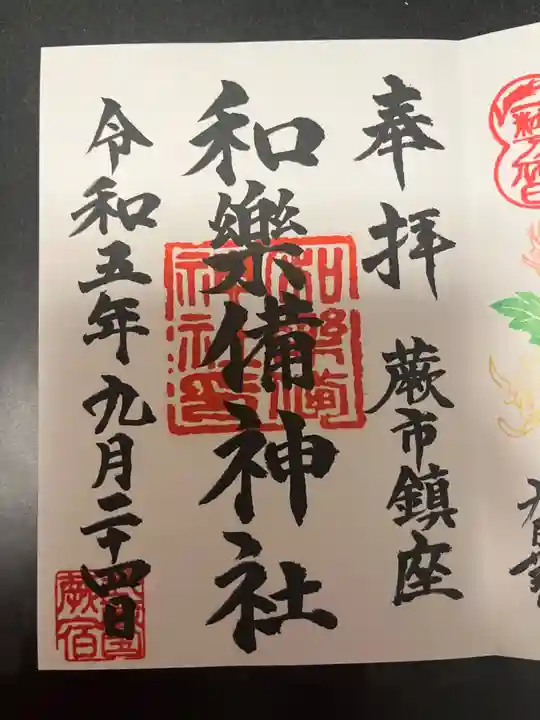 奉拝 蕨市鎮座
和樂備神社
令和五年九月二十四日
和樂備神社印
蕨宿